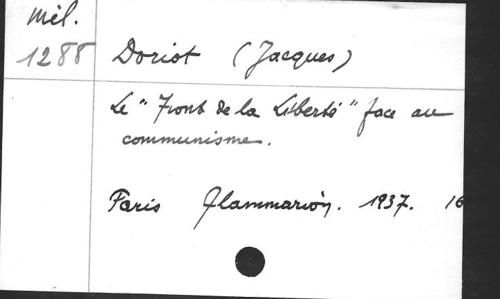 Mél.
1288 Doriot (Jacques)
Le "Front de la Liberté" face au
communisme.
Paris Flammarion. 1937. 16